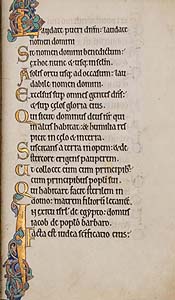 Laudate pueri dnm: laudate
nomen domini
Sit nomen domini benedictum:
ex hoc nunc & usq; in sclm.
A solis ortu usq; ad occasum: lau
dabile nomen domini.
Excelsus sup omnes gentes dns:
& sup celos gloria eius.
Quis sicut dominus deus nr qui
in altis habitat: & humilia res
picit in celo & in terra.
Suscitans a terra inopem: & de
stercore erigens pauperem.
Ut collocet eum cum principib;
cum principibus popli sui.
Qui habitare facit sterilem in
domo: matrem filiorum letantem.
In exitu isrl de egypto: domus
iacob de poplo barbaro.
Facta est iudea scificatio eius: